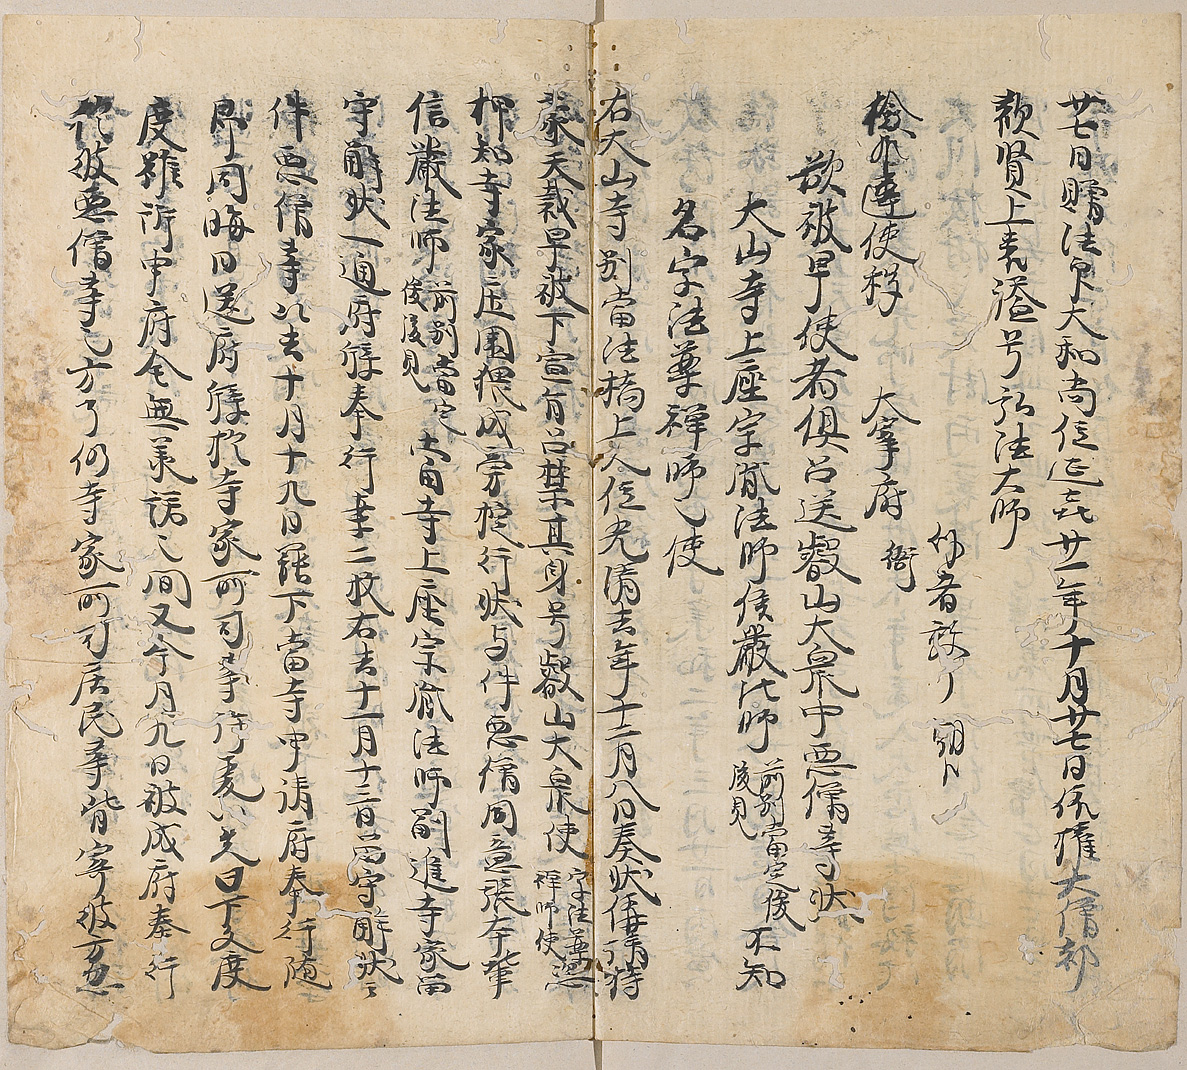 廿七日贈法印大和尚位延喜廿一年十月廿七日依権大僧都
観賢上表謚号弘法大師
外者救了 朝卜
検非違使移 大宰府 衙
欲被早使者俱召送叡山大衆中悪僧等状
大山寺上座字胤法師俊厳法師前別当定俊後見不知
名字法尊禅師之使
右大山寺別当法橋上人位光清去年十二月八日奏状偁請特
蒙天裁早被下宣旨召禁其身号叡山大衆使字法尊忍禅師使
押知寺家庄園猥成濫行状与件悪僧同意張本輩
信厳法師前別当定俊後見大自寺上座宗胤法師副進寺家留
守解状一通府牒奉行等二枚右去十一月十三日留守解状云
件悪僧等以去十月十九日罷下当寺申請府奉行随
即同晦日送府牒於寺家所司等行之先日下文度
度雖訴申府全無裁読之間又今月九日被成府奉行
於彼悪僧等之方了仍寺家所司居民等皆寄彼方悉